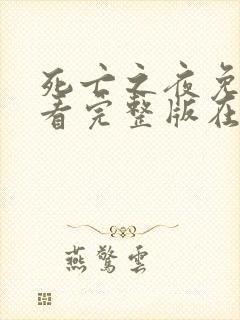 死亡之夜免
看完整版在
燕惊云